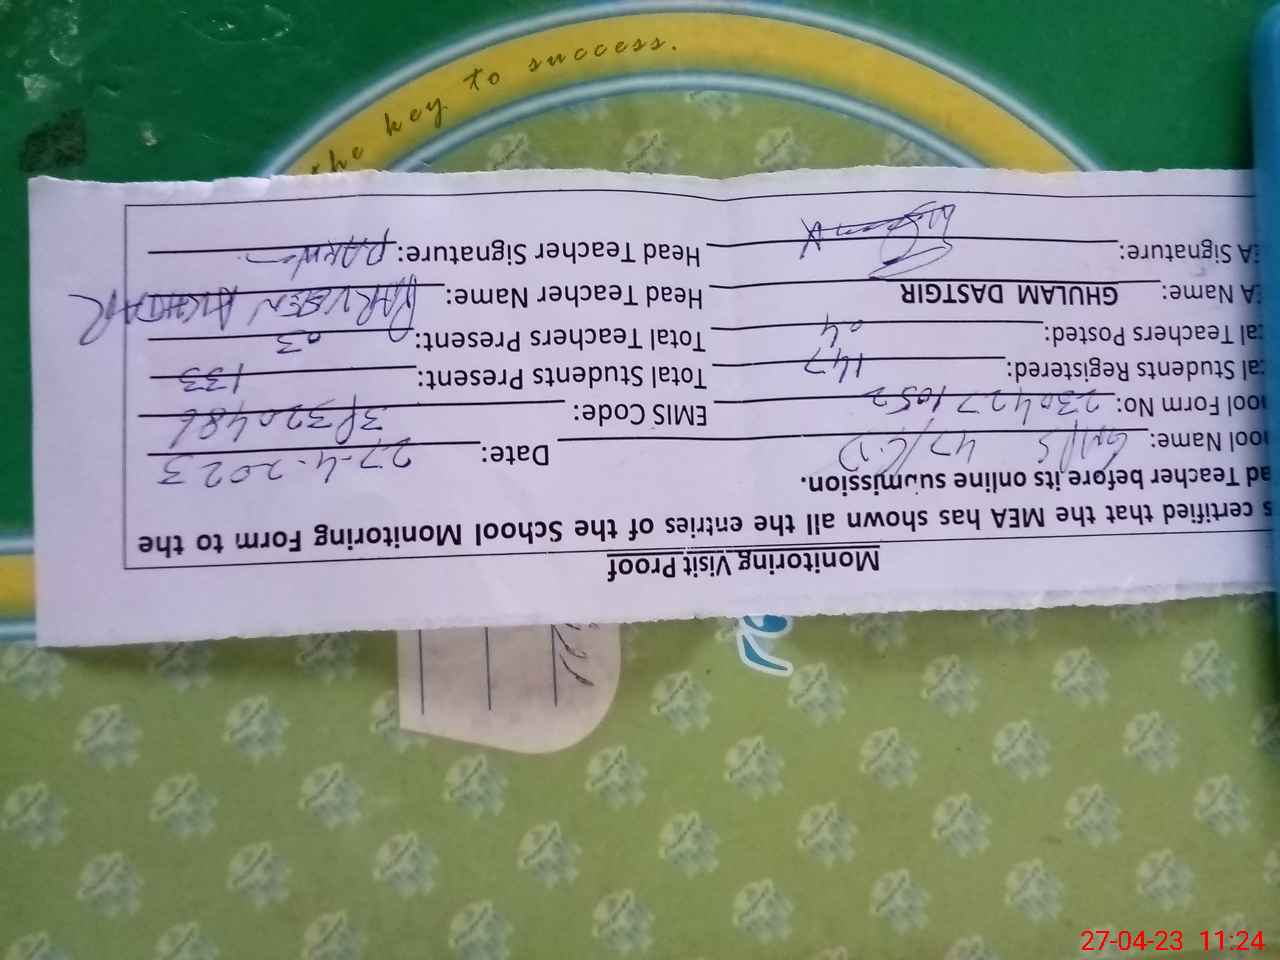 the key to success.
Monitoring Visit Proof
s certified that the MEA has shown all the entries of the School Monitoring Form to the
ad Teacher before its online submission.
ool Name: GMPS 47/G.D Date: 27-4-2023
ool Form No: 2304271052 EMIS Code: 3f320486
tal Students Registered: 147 Total Students Present: 133
tal Teachers Posted: 04 Total Teachers Present: 03
EA Name: GHULAM DASTGIR Head Teacher Name: PARVEEN AKHTAR
EA Signature: Head Teacher Signature:
27-04-23 11:24